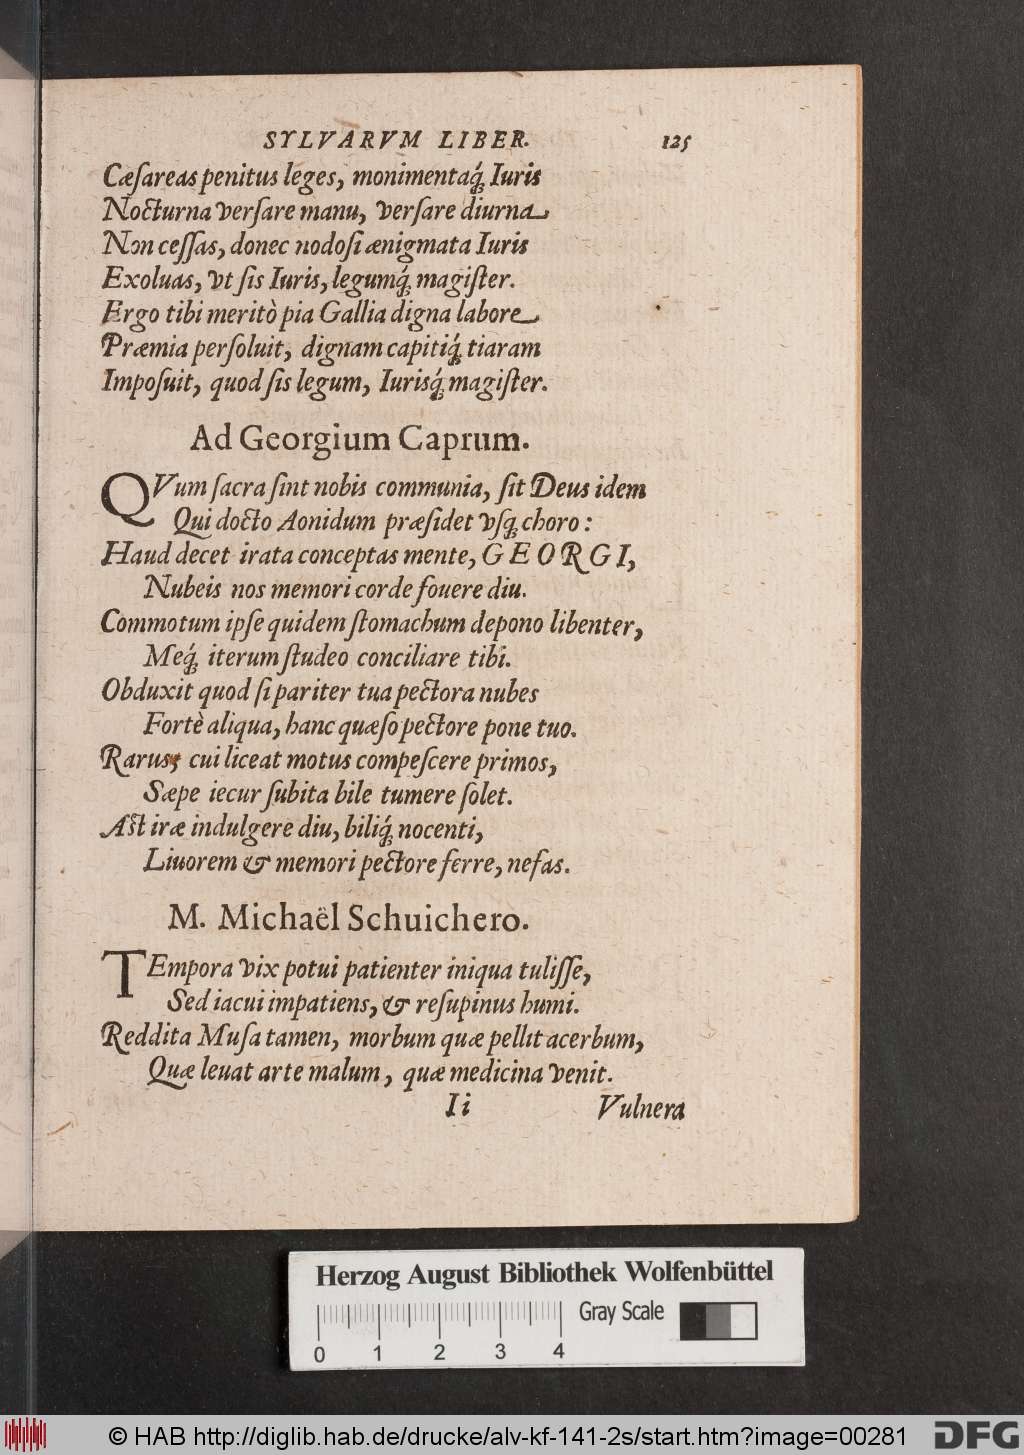 SYLVARVM LIBER. 125
Cæſareas penitus leges, monimentaq́; Iuris
Nocturna verſare manu, verſare diurna
Non ceſſas, donec nodoſi ænigmata Iuris
Exoluas, vt ſis Iuris, legumq́; magiſter.
Ergo tibi meritò pia Gallia digna labore
Præmia perſoluit, dignam capitiq́; tiaram
Impoſuit, quod ſis legum, Iurisq́; magiſter.
Ad Georgium Caprum.
QVum ſacra ſint nobis communia, ſit Deus idem
Qui docto Aonidum præſidet vſq; choro:
Haud decet irata conceptas mente, GEORGI,
Nubeis nos memori corde fouere diu.
Commotum ipſe quidem ſtomachum depono libenter,
Meq́; iterum ſtudeo conciliare tibi.
Obduxit quod ſi pariter tua pectora nubes
Fortè aliqua, hanc quæſo pectore pone tuo.
Rarus, cui liceat motus compeſcere primos,
Sæpe iecur ſubita bile tumere ſolet.
Aſt iræ indulgere diu, biliq́; nocenti,
Liuorem & memori pectore ferre, nefas.
M. Michaël Schuichero.
TEmpora vix potui patienter iniqua tuliſſe,
Sed iacui impatiens, & reſupinus humi.
Reddita Muſa tamen, morbum quæ pellit acerbum,
Quæ leuat arte malum, quæ medicina venit.
Ii Vulnera
Herzog August Bibliothek Wolfenbüttel
Gray Scale
0 1 2 3 4
© HAB http://diglib.hab.de/drucke/alv-kf-141-2s/start.htm?image=00281
DFG